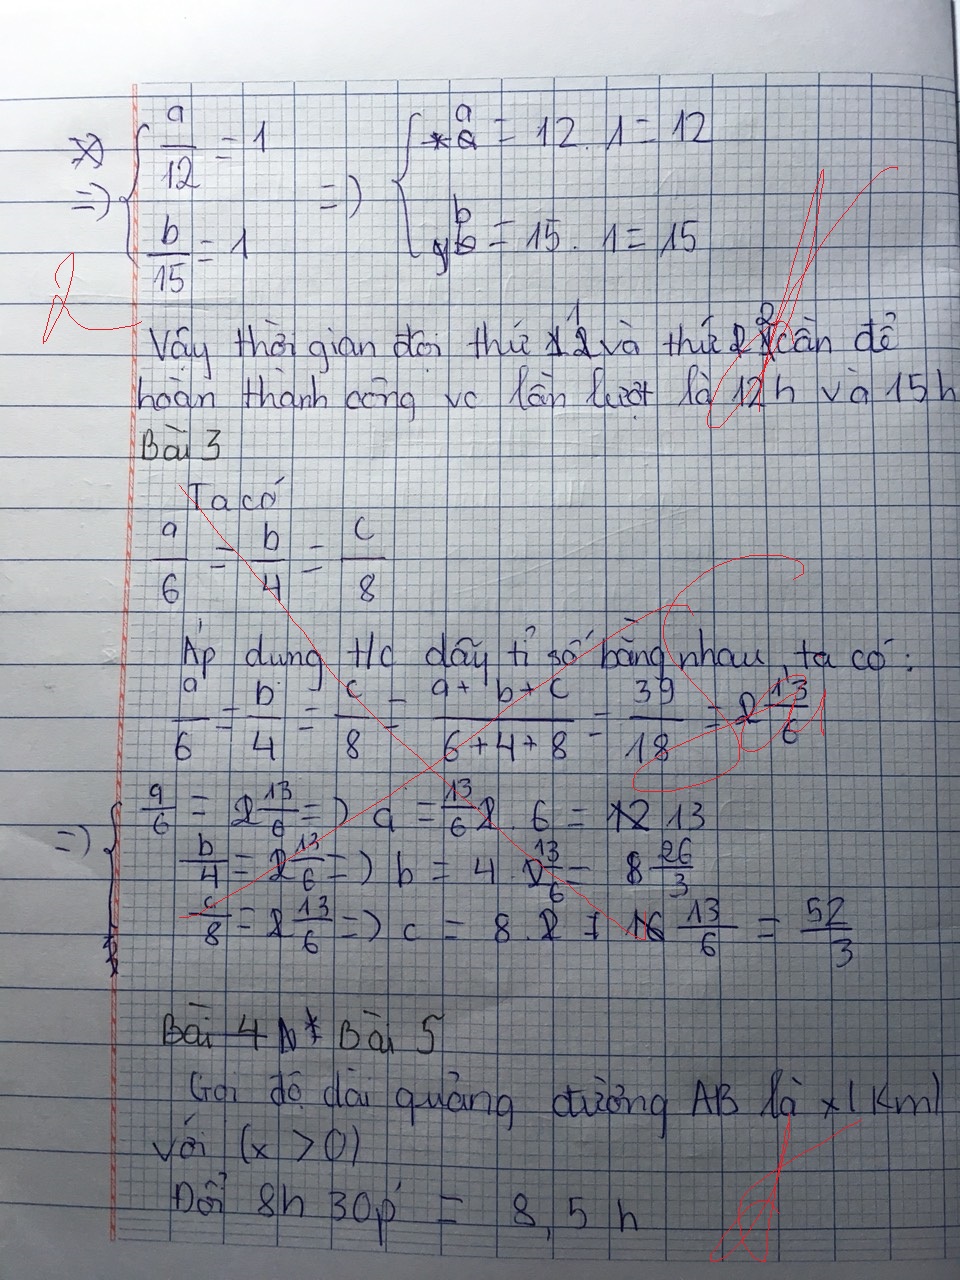 a/12 = 1 => a = 12 . 1 = 12
=> b/15 = 1 b = 15 . 1 = 15
Vậy thời gian đội thứ 1 và thứ 2 cần để
hoàn thành công vc lần lượt là 12h và 15h
Bài 3
Ta có
a/6 = b/4 = c/8
Áp dụng t/c dãy tỉ số bằng nhau, ta có:
a/6 = b/4 = c/8 = a+b+c/6+4+8 = 39/18 = 13/6
a/6 = 13/6 => a = 13/6 . 6 = 13
=> b/4 = 13/6 => b = 4 . 13/6 = 26/3
c/8 = 13/6 => c = 8 . 13/6 = 52/3
Bài 4 Bài 5
Gọi độ dài quảng đường AB là x (Km)
với (x > 0)
Đổi 8h 30p' = 8,5 h